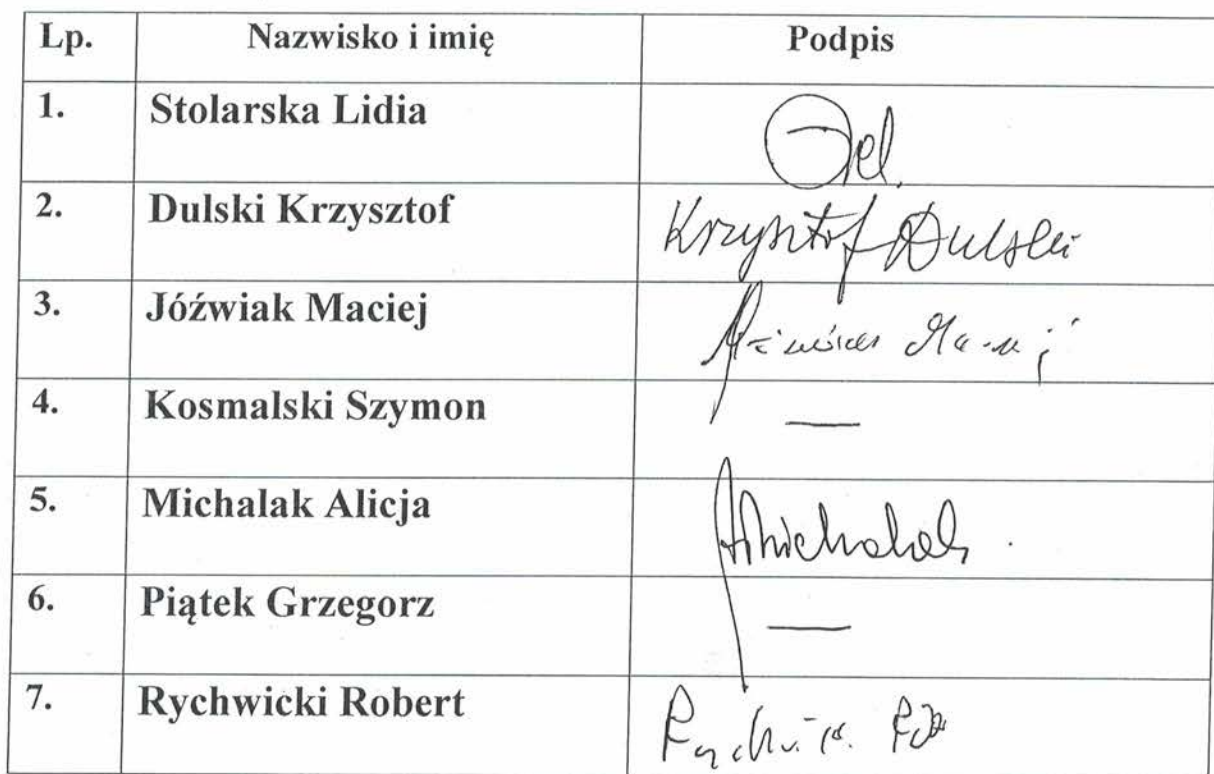 Lp. Nazwisko i imię Podpis
1. Stolarska Lidia
2. Dulski Krzysztof Krzysztof Dulski
3. Jóźwiak Maciej
4. Kosmalski Szymon —
5. Michalak Alicja AMichalak
6. Piątek Grzegorz —
7. Rychwicki Robert